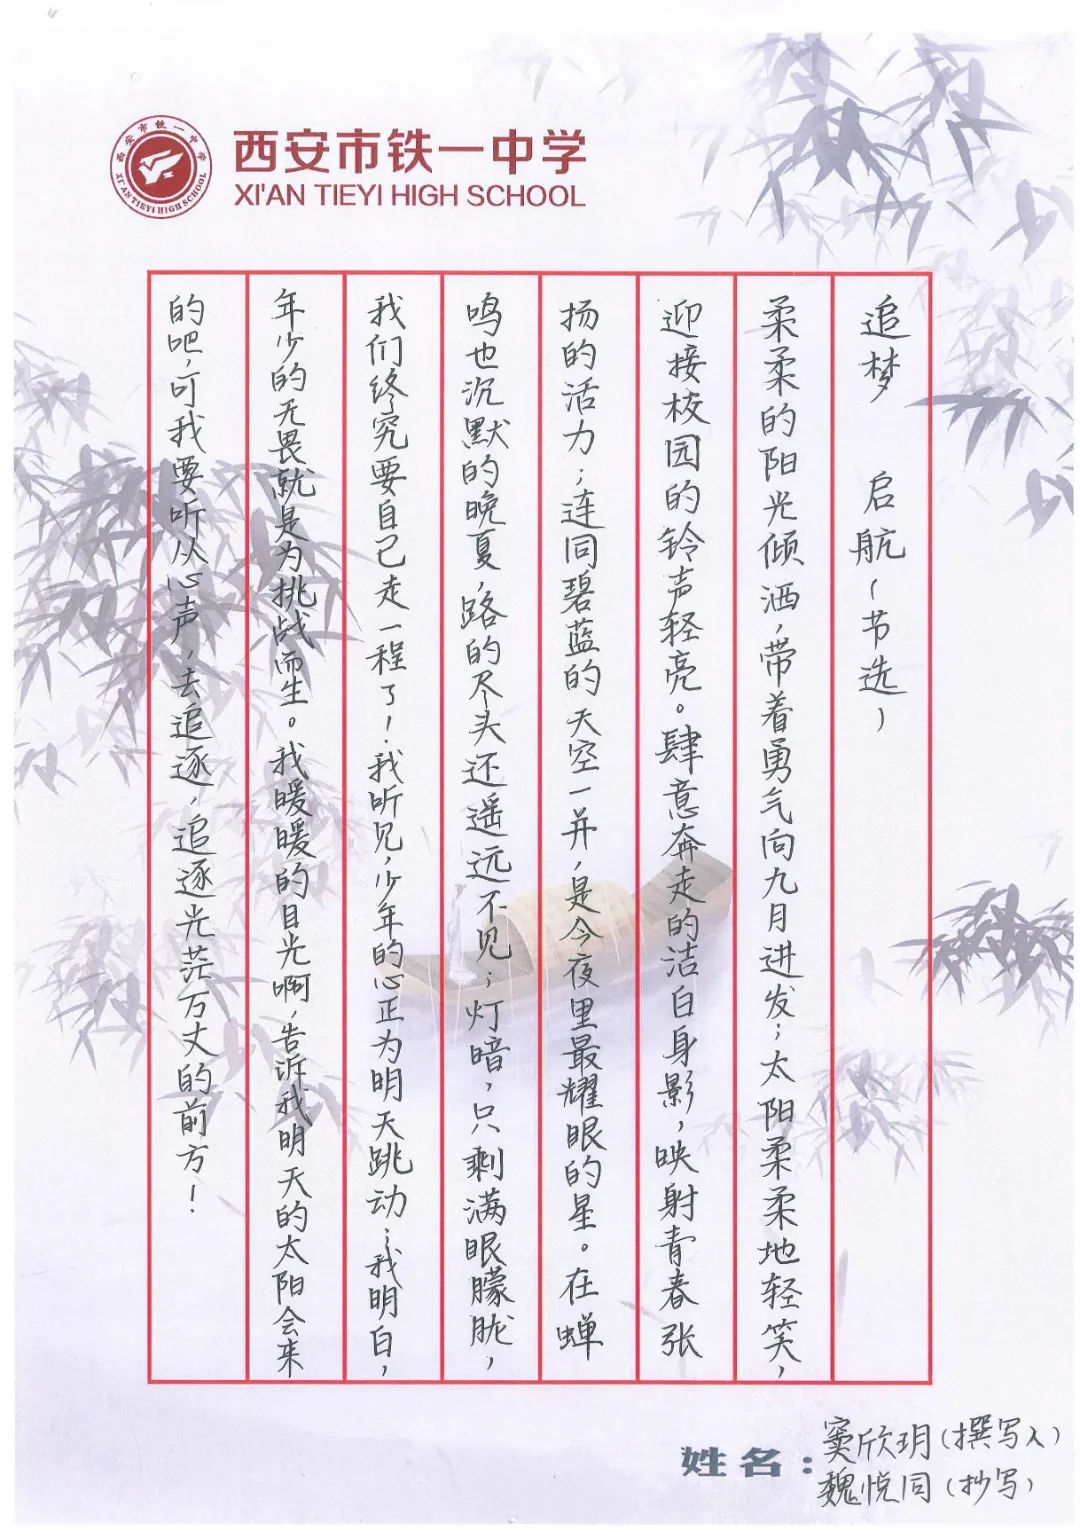 西安市铁一中学
XI'AN TIEYI HIGH SCHOOL
西安市铁一中学
XI'AN TIEYI HIGH SCHOOL
追梦 启航(节选)
柔柔的阳光倾洒,带着勇气向九月进发;太阳柔柔地轻笑,
迎接校园的铃声轻亮。肆意奔走的洁白身影,映射青春张
扬的活力;连同碧蓝的天空一并,是今夜里最耀眼的星。在蝉
鸣也沉默的晚夏,路的尽头还遥远不见;灯暗,只剩满眼朦胧,
我们终究要自己走一程了!我听见,少年的心正为明天跳动;我明白,
年少的无畏就是为挑战而生。我暖暖的目光啊,告诉我明天的太阳会来
的吧,叮我要听从心声,去追逐,追逐光茫万丈的前方!
姓名:窦欣玥(撰写人)
魏悦同(抄写)